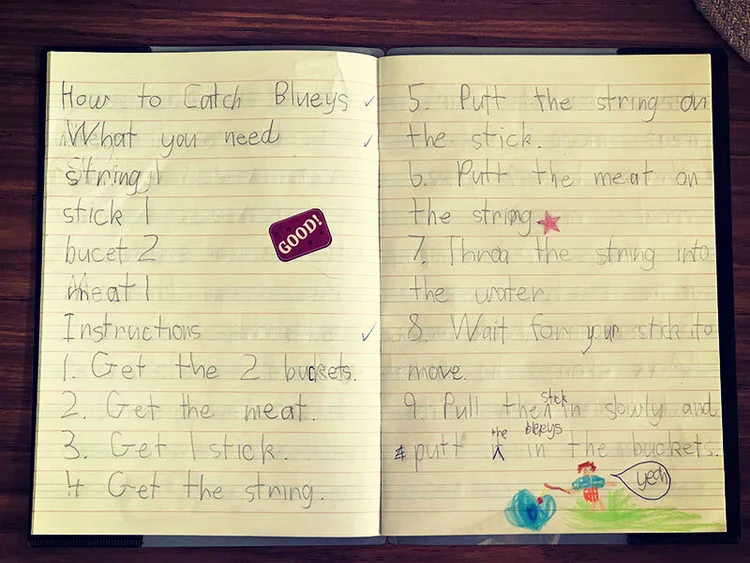 How to Catch Blueys
What you need
String 1
stick 1
bucet 2
Meat 1
GOOD!
Instructions
1. Get the 2 buckets.
2. Get the meat.
3. Get 1 stick.
4 Get the string.
5. Putt the string on
the stick.
6. Putt the meat on
the string
7. Throa the string into
the water.
8. Wait for your stick to
move.
stick
9. Pull then in slowly and
the blueys
putt in the buckets.
yeah